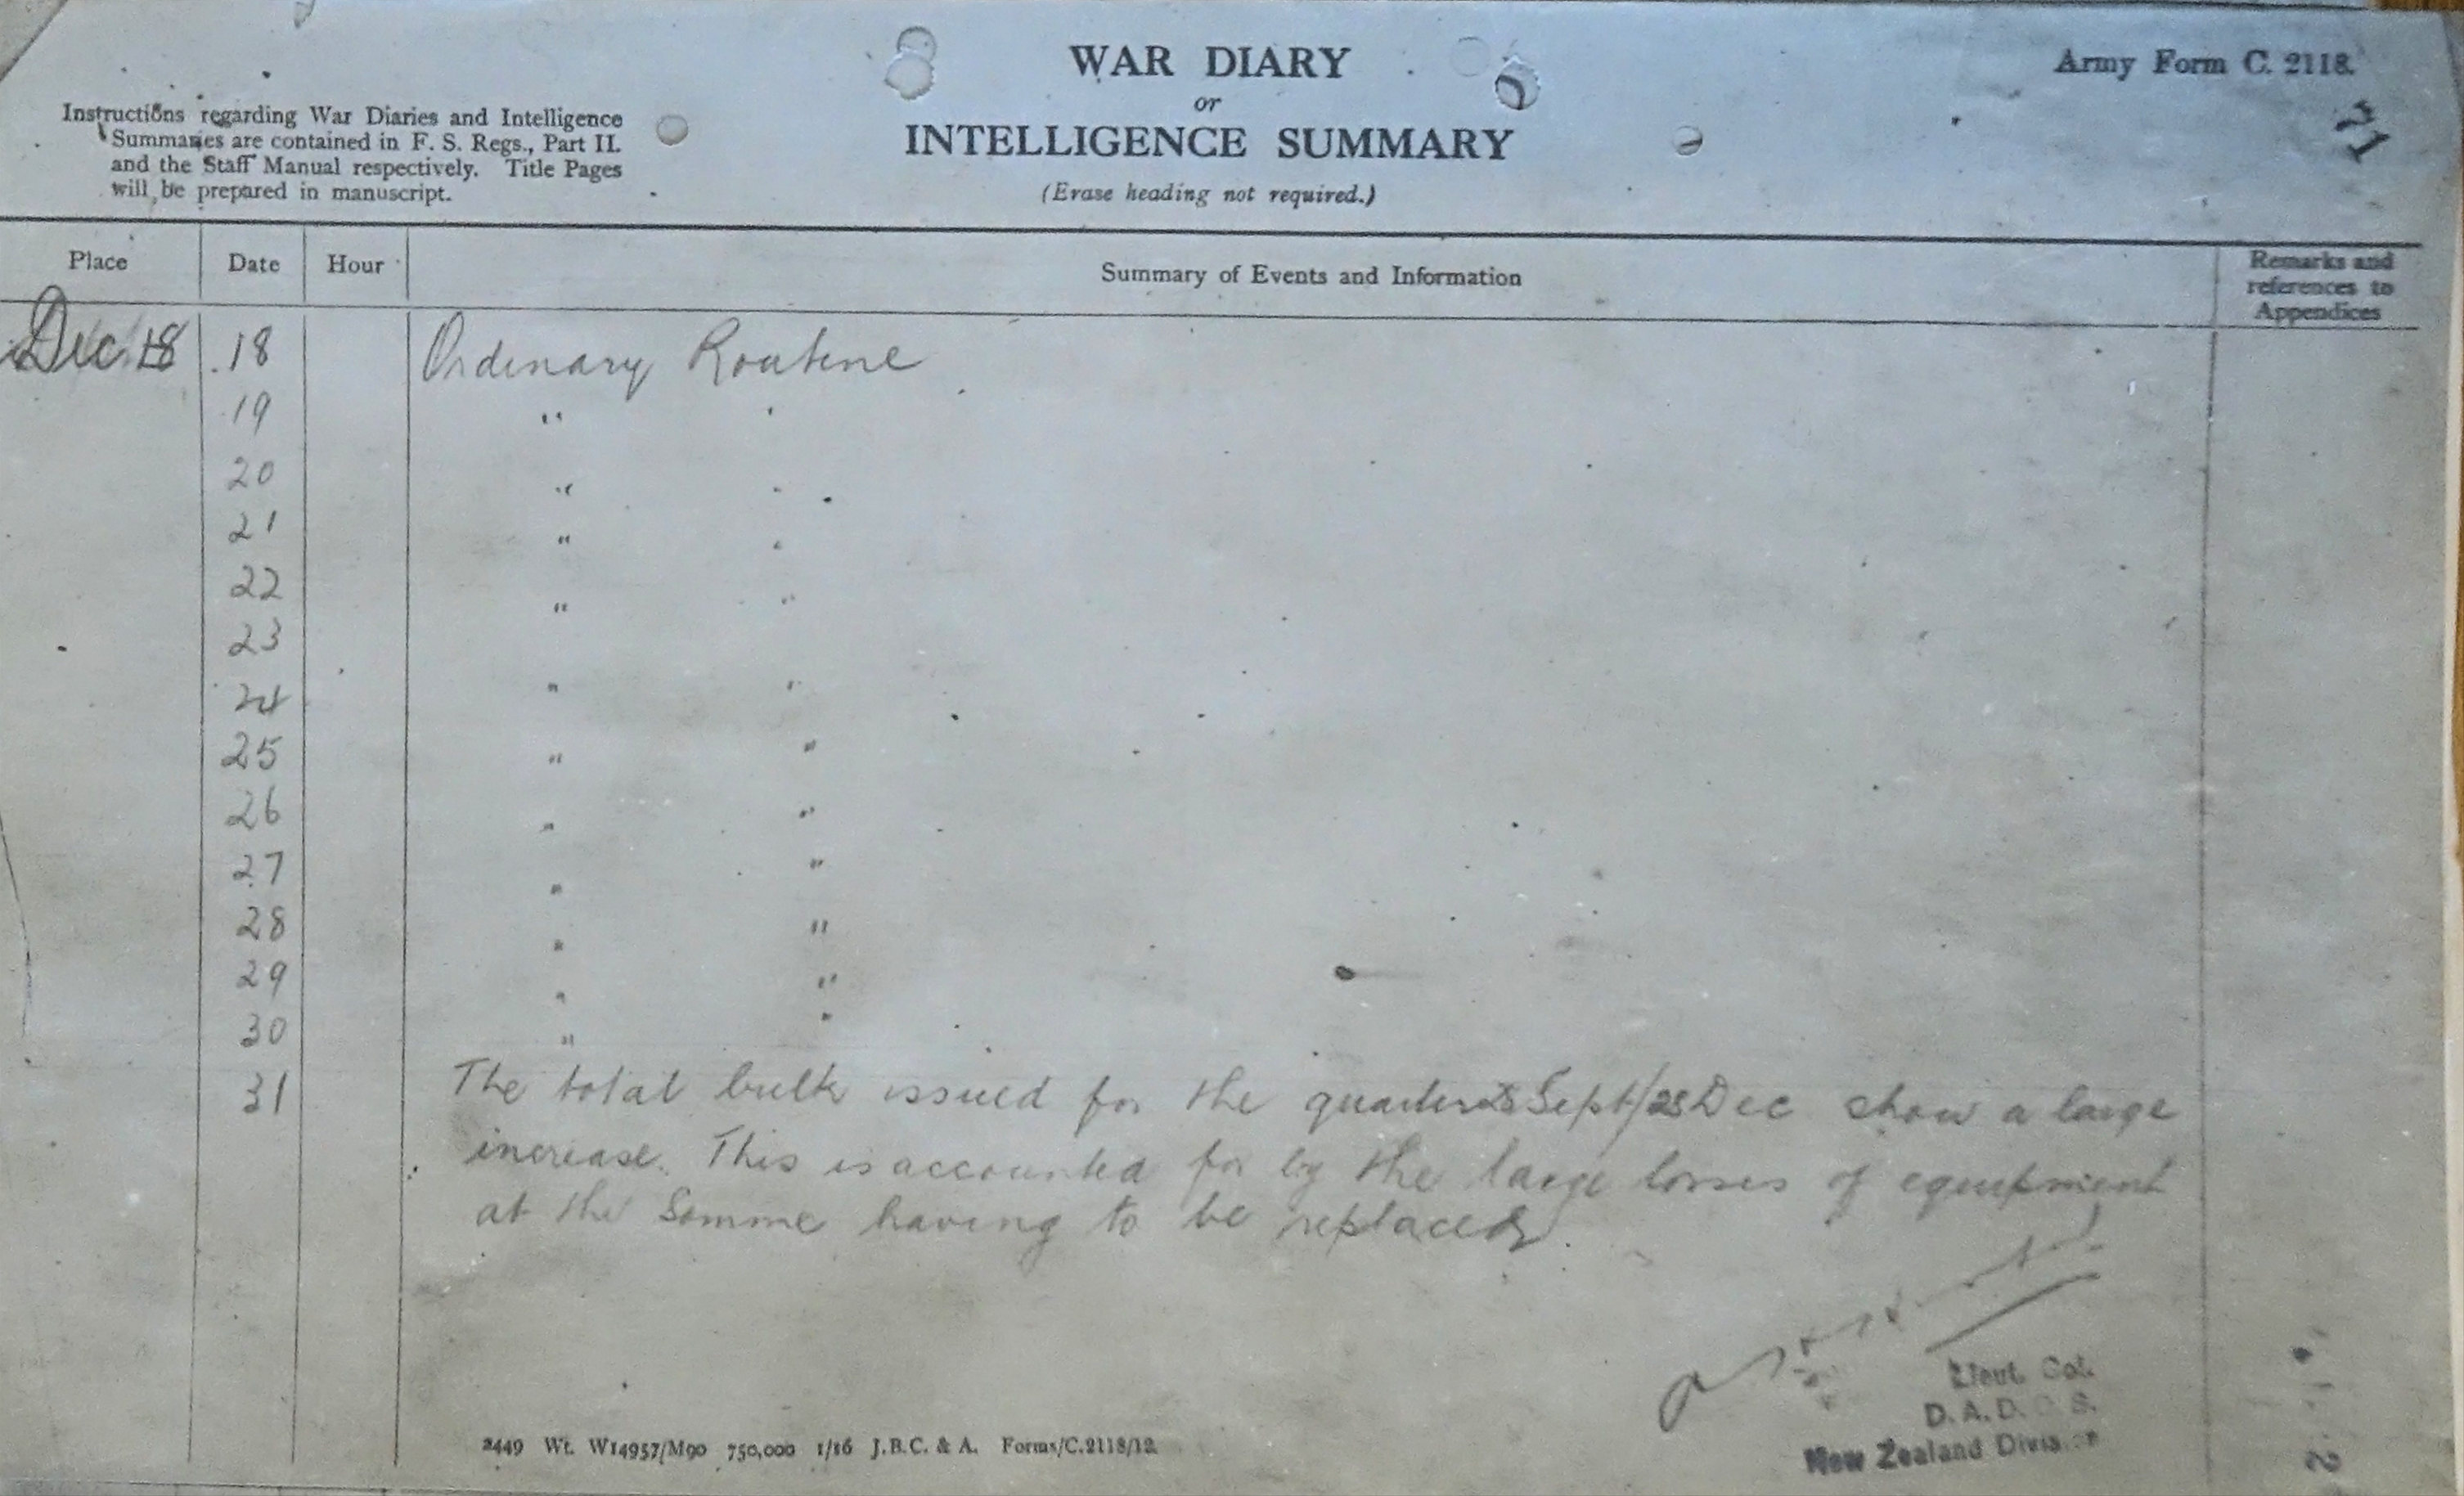 WAR DIARY
or
INTELLIGENCE SUMMARY
(Erase heading not required.)
Army Form C. 2118.
21
Instructions regarding War Diaries and Intelligence
Summaries are contained in F. S. Regs., Part II.
and the Staff Manual respectively. Title Pages
will be prepared in manuscript.
Place Date Hour Summary of Events and Information Remarks and references to Appendices
Dec. 18 18 Ordinary Routine
19 " "
20 " "
21 " "
22 " "
23
24 " "
25 " "
26 " "
27 " "
28 " "
29 " "
30 " "
31 The total bulk issued for the quarter Sept/28 Dec show a large
increase. This is accounted for by the large losses of equipment
at the Somme having to be replaced.
Lieut. Col.
D.A.D.O.S.
New Zealand Division
2449 Wt. W14957/M90 750,000 1/16 J.B.C. & A. Forms/C.2118/12.